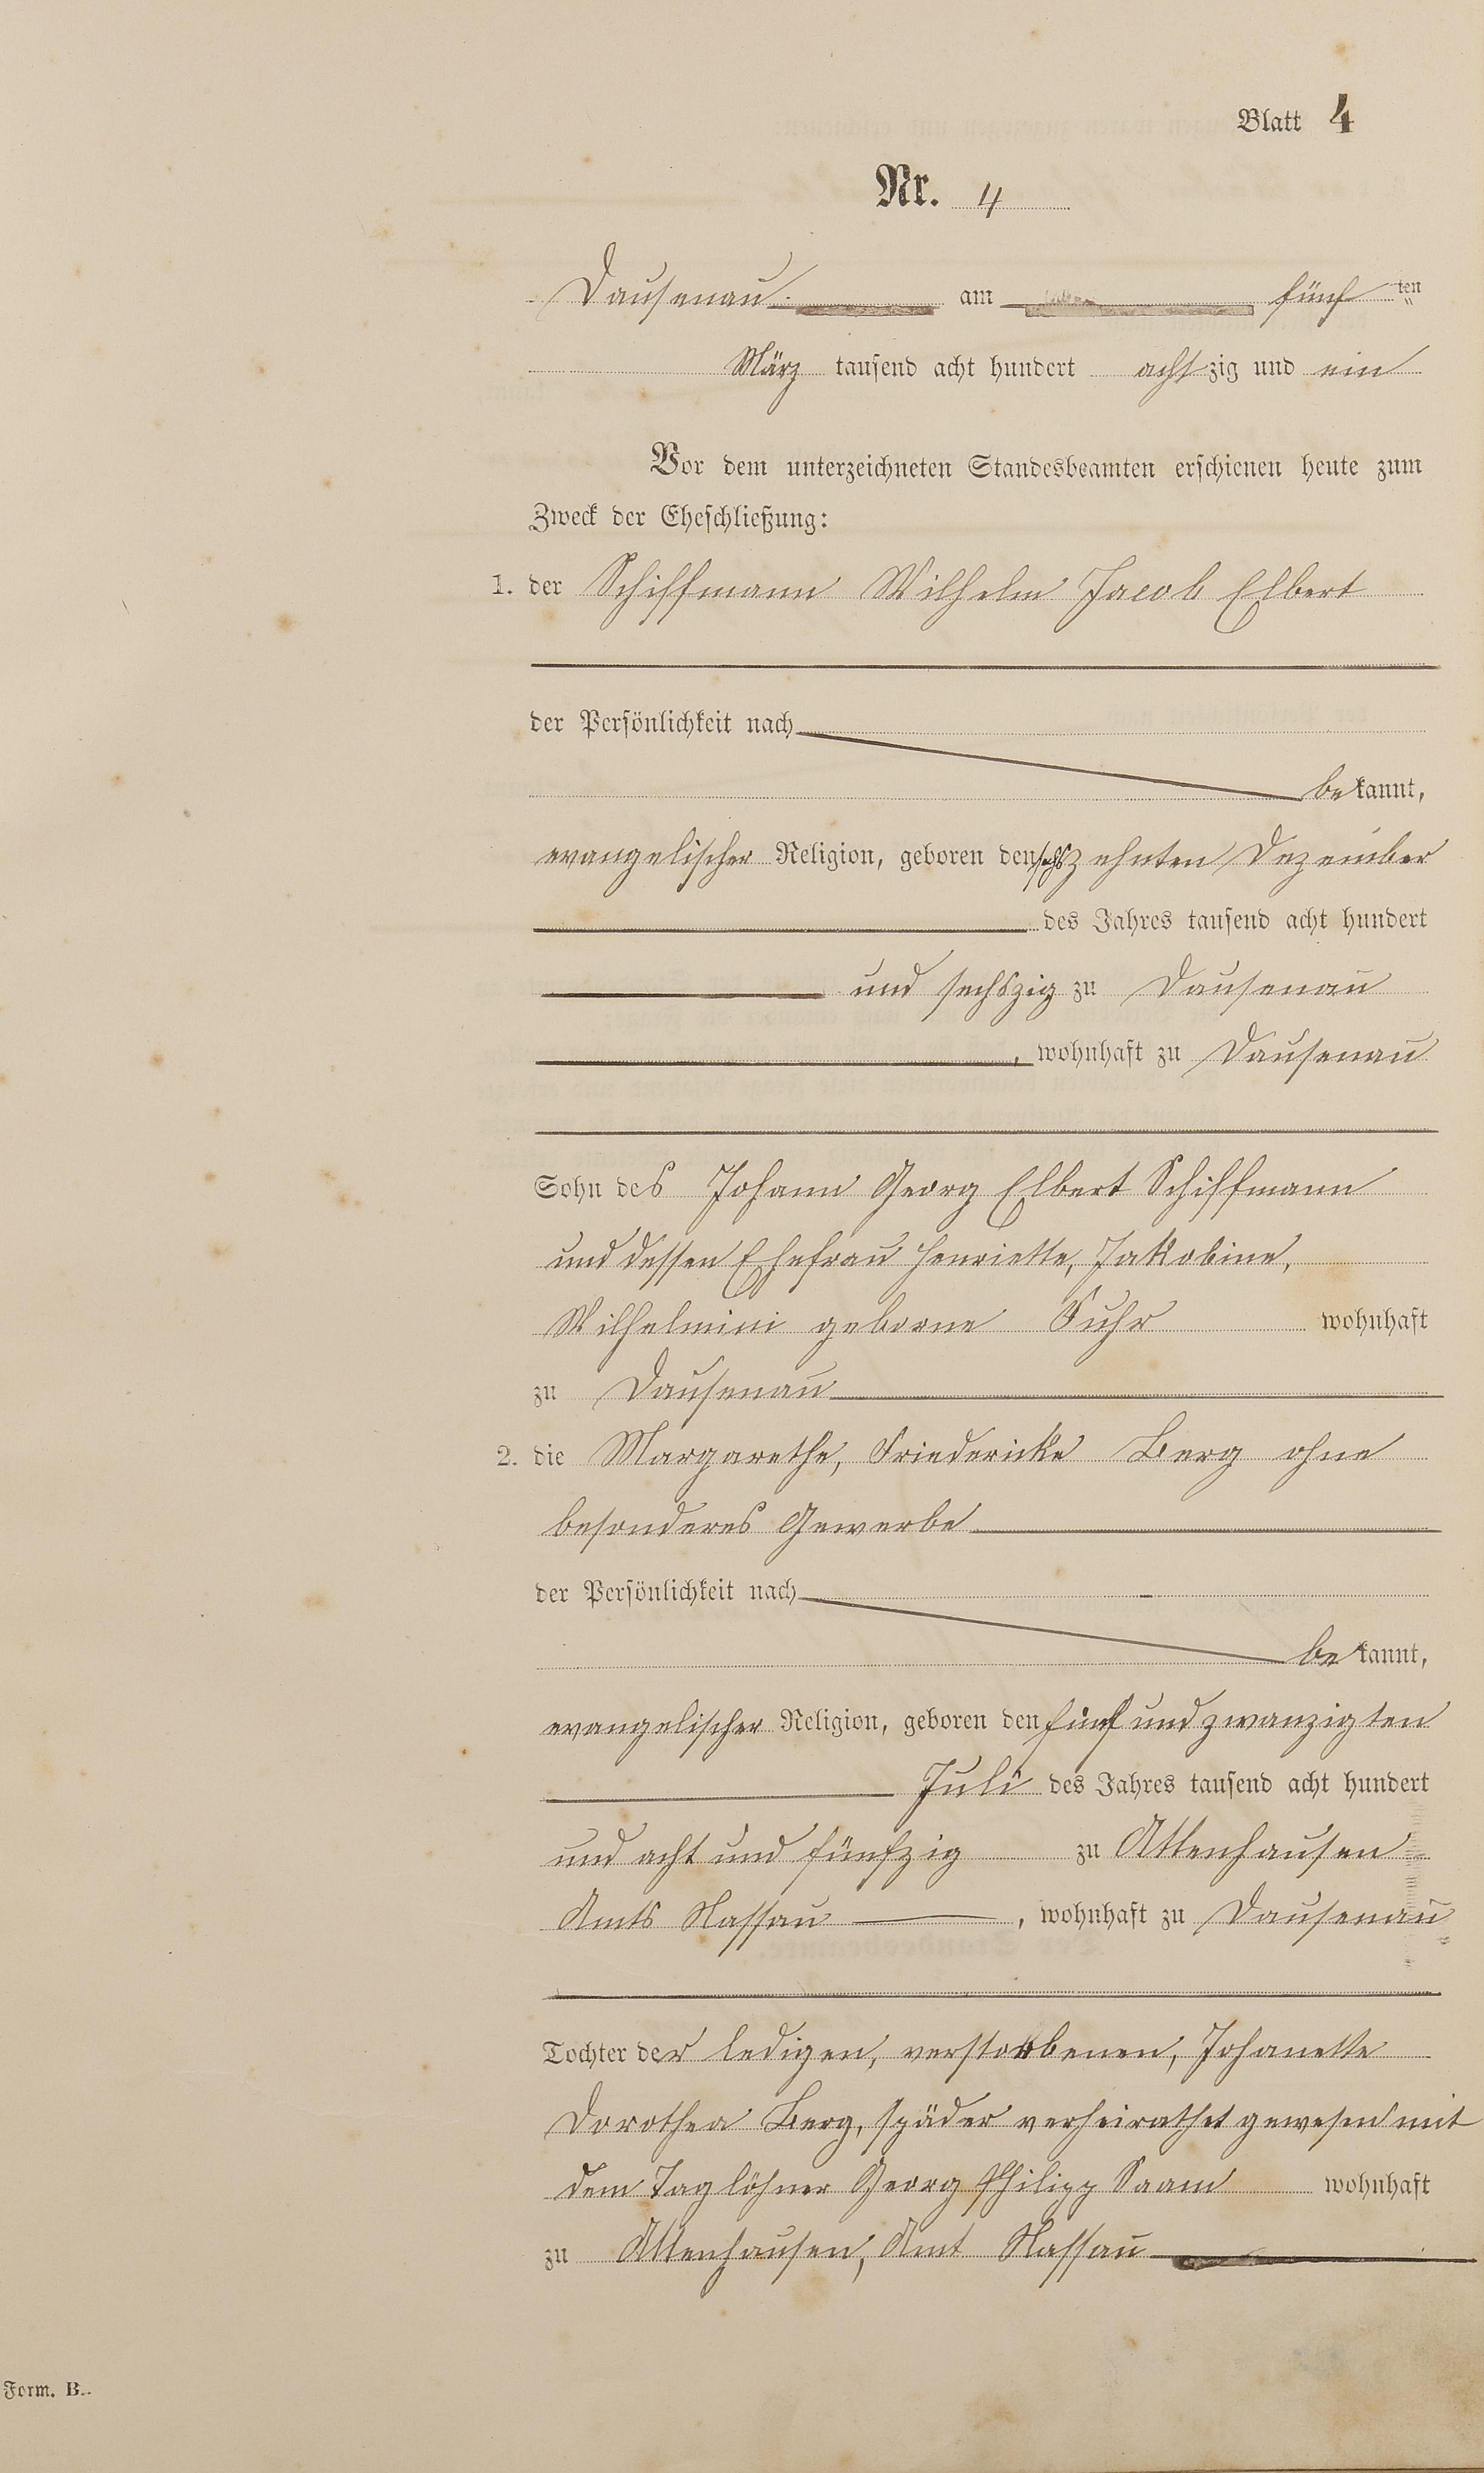 Blatt 4
Nr. 4
Dausenau. am fünf ten
März tausend acht hundert achtzig und ein
Vor dem unterzeichneten Standesbeamten erschienen heute zum
Zweck der Eheschließung:
1. der Schiffmann Wilhelm Jacob Elbert
der Persönlichkeit nach
bekannt,
evangelischer Religion, geboren den sechszehnten Dezember
des Jahres tausend acht hundert
und sechszig zu Dausenau
, wohnhaft zu Dausenau
Sohn des Johann Georg Elbert Schiffmann
und dessen Ehefrau Henriette, Jakobine,
Wilhelmini geborne Fuhr wohnhaft
zu Dausenau
2. die Margarethe, Friedericke Berg ohne
besonderes Gewerbe
der Persönlichkeit nach
bekannt,
evangelischer Religion, geboren den fünf und zwanzigten
Juli des Jahres tausend acht hundert
und acht und fünfzig zu Attenhausen
Amts Nassau , wohnhaft zu Dausenau
Tochter der ledigen, verstorbenen, Johanette
Dorothea Berg, späder verheirathet gewesen mit
dem Taglöhner Georg Philipp Saam wohnhaft
zu Attenhausen, Amt Nassau
Form. B.